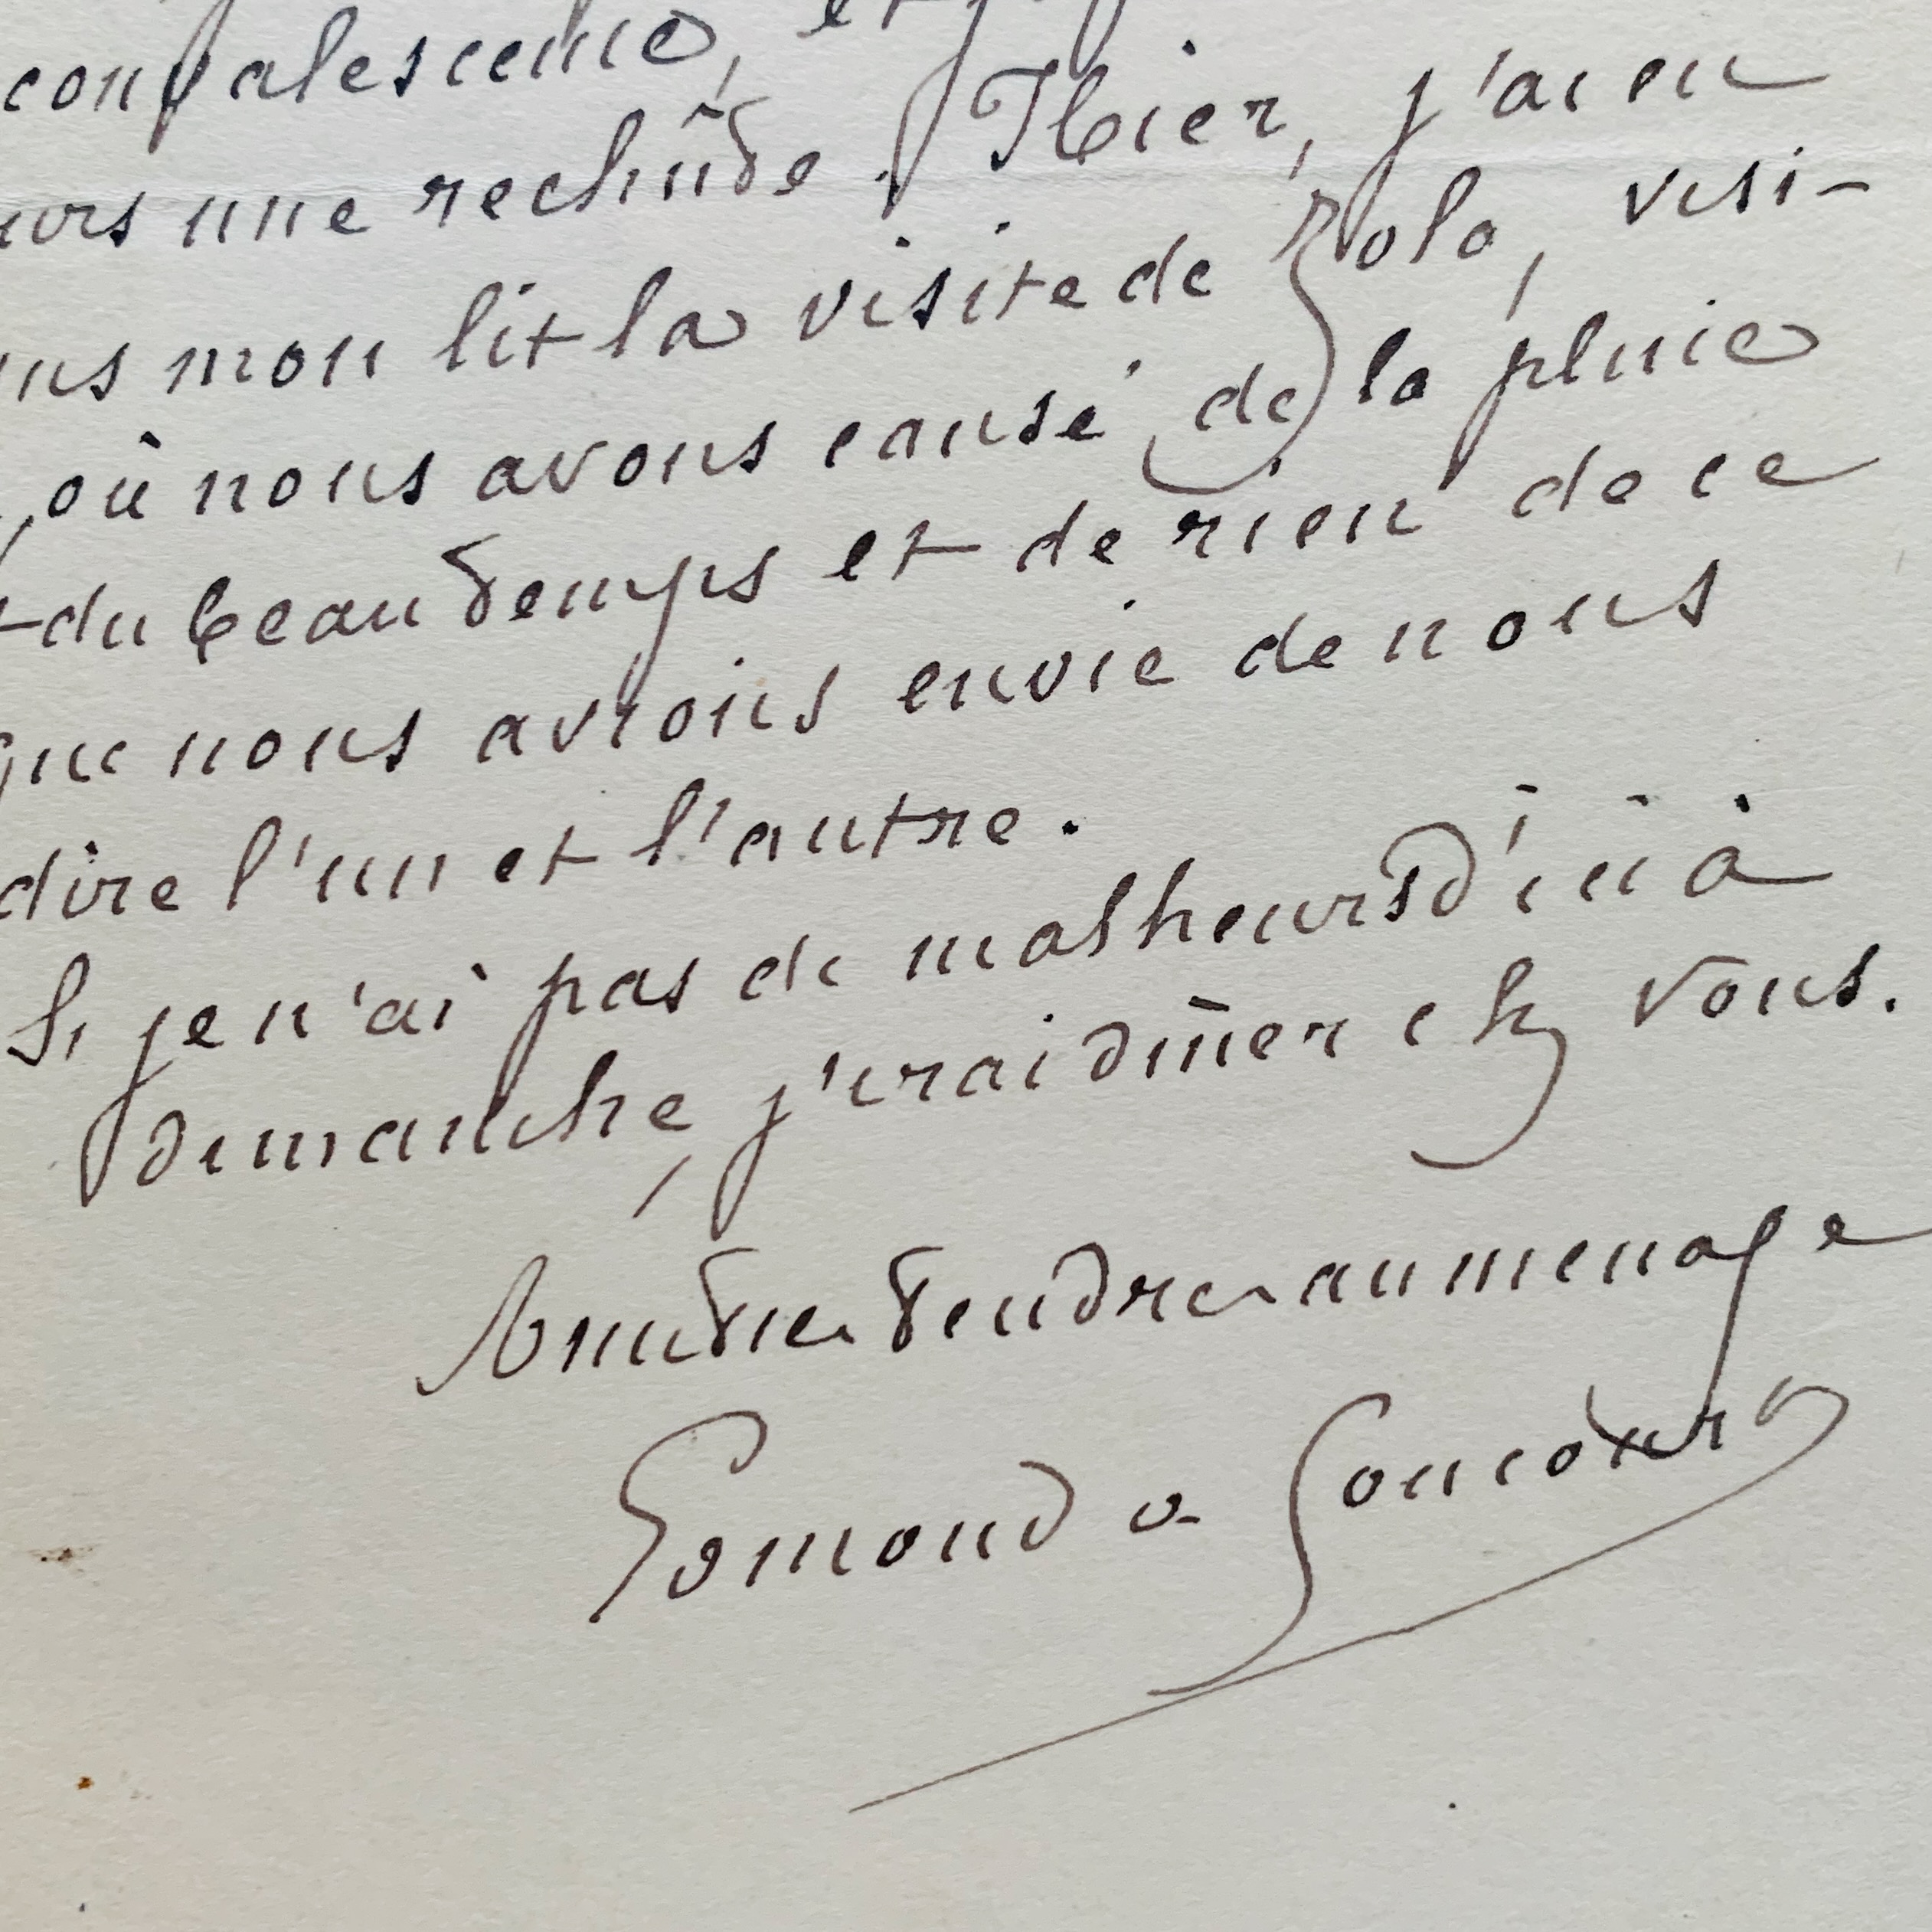 convalescence, et
une rechûte. Hier, j'ai eu
mon lit la visite de Zola, visi-
où nous avons causé de la pluie
du beau temps et de rien de ce
que nous avions envie de nous
dire l'un et l'autre.
Si je n'ai pas de malheurs d'ici à
dimanche, j'irai dîner chez vous.
Amitiés tendres au menage
Edmond de Goncourt